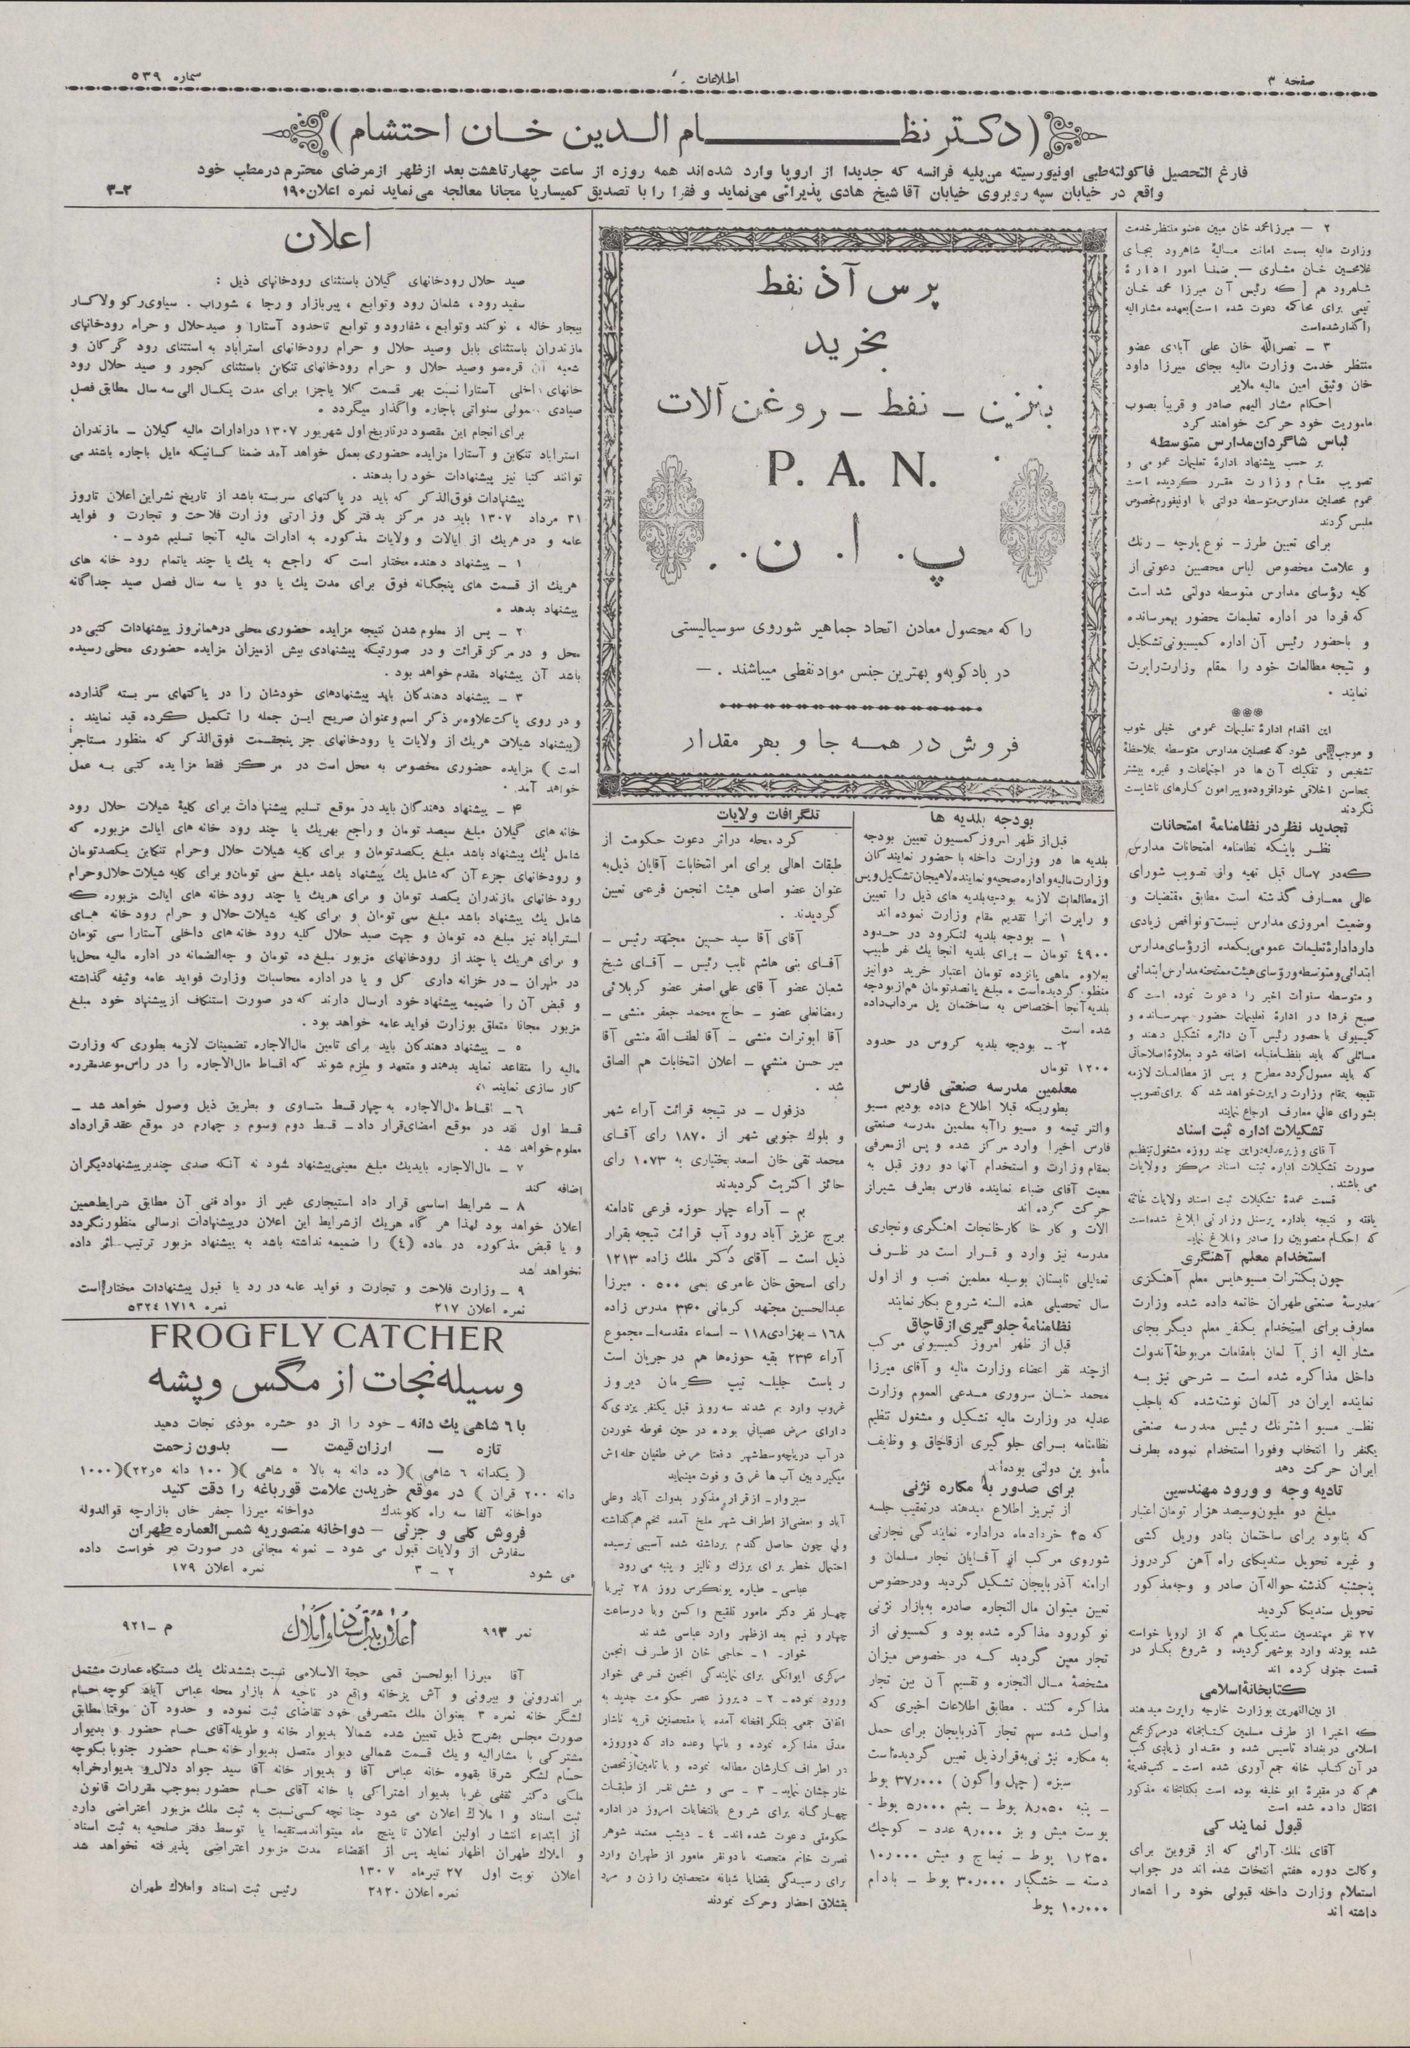 صفحه ۳
اطلاعات
شماره ۵۳۹
(دکتر نظام الدین خان احتشام)
فارغ التحصیل فاکولته طبی اونیورسیته من‌پلیه فرانسه که جدیدا از اروپا وارد شده‌اند همه روزه از ساعت چهار تا هشت بعد از ظهر از مرضای محترم در مطب خود
واقع در خیابان سپه روبروی خیابان آقا شیخ هادی پذیرائی می‌نماید و فقرا را با تصدیق کمیساریا مجانا معالجه می‌نماید نمره اعلان ۱۹۰
۳-۲
۲ — میرزا محمد خان مبین عضو منتظر خدمت
وزارت مالیه بسمت امانت مالیهٔ شاهرود بجای
غلامحسین خان مشاری — ضمنا امور ادارهٔ
شاهرود هم [ که رئیس آن میرزا محمد خان
برای محاکمه دعوت شده است) بعهده مشارالیه
واگذار شده است
۳ — نصرالله خان علی آبادی عضو
منتظر خدمت وزارت مالیه بجای میرزا داود
خان وثیق امین مالیه ملایر
احکام مشار الیهم صادر و قریباً بصوب
ماموریت خود حرکت خواهند کرد
لباس شاگردان مدارس متوسطه
بر حسب پیشنهاد ادارهٔ تعلیمات عمومی و
تصویب مقام وزارت مقرر گردیده است
عموم محصلین مدارس متوسطه دولتی با اونیفورم مخصوص
ملبس گردند
برای تعیین طرز — نوع پارچه — رنگ
و علامت مخصوص لباس محصلین دعوتی از
کلیه رؤسای مدارس متوسطه دولتی شده است
که فردا در اداره تعلیمات حضور بهمرسانده
و باحضور رئیس آن اداره کمیسیونی تشکیل
و نتیجه مطالعات خود را بمقام وزارت راپرت
نمایند .
***
این اقدام ادارهٔ تعلیمات عمومی خیلی خوب
و موجب می شود که محصلین مدارس متوسطه بملاحظهٔ
تشخیص و تفکیک آن ها در اجتماعات و غیره بیشتر
بمحاسن اخلاقی خود افزوده و پیرامون کارهای ناشایست
نگردند
تجدید نظر در نظامنامهٔ امتحانات
نظر باینکه نظامنامه امتحانات مدارس
که در ۷ سال قبل تهیه و از تصویب شورای
عالی معارف گذشته است مطابق مقتضیات و
وضعیت امروزی مدارس نیست و نواقص زیادی
دارد ادارهٔ تعلیمات عمومی یکعده از رؤسای مدارس
ابتدائی و متوسطه و رؤسای هیئت ممتحنه مدارس ابتدائی
و متوسطه سنوات اخیر را دعوت نموده است که
صبح فردا در ادارهٔ تعلیمات حضور بهمرسانده و
کمیسیونی با حضور رئیس آن دائره تشکیل دهند و
مسائلی که باید بنظامنامه اضافه شود بعلاوهٔ اصلاحاتی
که باید معمول گردد مطرح و پس از مطالعات لازمه
نتیجه بمقام وزارت راپرت خواهد شد که برای تصویب
بشورای عالی معارف ارجاع نمایند
تشکیلات اداره ثبت اسناد
آقای وزیر عدلیه در این چند روزه مشغول تنظیم
صورت تشکیلات اداره ثبت اسناد مرکز و ولایات
می باشند .
قسمت عمدهٔ تشکیلات ثبت اسناد ولایات خاتمه
یافته و نتیجه باداره پرسنل وزارتی ابلاغ شده است
که احکام منصوبین را صادر و ابلاغ نماید
استخدام معلم آهنگری
چون بکنترات مسیو هایس معلم آهنگری
مدرسهٔ صنعتی طهران خاتمه داده شده وزارت
معارف برای استخدام یکنفر معلم دیگر بجای
مشار الیه از آلمان بامقامات مربوطهٔ آندولت
داخل مذاکره شده است — شرحی نیز به
نماینده ایران در آلمان نوشته شده که باجلب
نظر مسیو اشترنک رئیس مدرسه صنعتی
یکنفر را انتخاب و فورا استخدام نموده بطرف
ایران حرکت دهد
تادیه وجه و ورود مهندسین
مبلغ دو ملیون و سیصد هزار تومان اعتبار
که بنابود برای ساختمان بنادر و ریل کشی
و غیره تحویل سندیکای راه آهن گردد روز
پنجشنبه گذشته حواله آن صادر و وجه مذکور
تحویل سندیکا گردید
۲۷ نفر مهندسین سندیکا هم که از اروپا خواسته
شده بودند وارد بوشهر گردیده و شروع بکار در
قسمت جنوبی کرده اند
کتابخانهٔ اسلامی
از بین‌النهرین بوزارت خارجه راپرت میدهند
که اخیرا از طرف مسلمین کتابخانه در مرکز مجمع
اسلامی در بغداد تاسیس شده و مقدار زیادی کتب
در آن کتاب خانه جمع آوری شده است — کتب قدیمهٔ
هم که در مقبرهٔ ابو خلیفه بوده است بکتابخانه مذکور
انتقال داده شده است
قبول نمایندگی
آقای ملک آرائی که از قزوین برای
وکالت دوره هفتم انتخاب شده اند در جواب
استعلام وزارت داخله قبولی خود را اشعار
داشته اند
پرس آذ نفط
بخرید
بنزین — نفط — روغن آلات
P. A. N.
پ. ا. ن.
را که محصول معادن اتحاد جماهیر شوروی سوسیالیستی
در بادکوبه و بهترین جنس مواد نفطی میباشند . —
فروش در همه جا و بهر مقدار
بودجه بلدیه ها
قبل از ظهر امروز کمسیون تعیین بودجه
بلدیه ها در وزارت داخله با حضور نمایندگان
وزارت مالیه و اداره صحیه و نماینده لاهیجان تشکیل و پس
از مطالعات لازمه بودجه بلدیه های ذیل را تعیین
و راپرت آنرا تقدیم مقام وزارت نموده اند
۱ — بودجه بلدیه لنگرود در حدود
۴۹۰۰ تومان — برای بلدیه آنجا یک نفر طبیب
بعلاوه ماهی پانزده تومان اعتبار خرید دوا نیز
منظور گردیده است . مبلغ پانصد تومان هم از بودجه
بلدیه آنجا اختصاص به ساختمان پل مرداب داده
شده است
۲ — بودجه بلدیه گروس در حدود
۱۲۰۰ تومان
معلمین مدرسه صنعتی فارس
بطوریکه قبلا اطلاع داده بودیم مسیو
والتر تیمه و مسیو را آبه معلمین مدرسه صنعتی
فارس اخیرا وارد مرکز شده و پس از معرفی
بمقام وزارت و استخدام آنها دو روز قبل به
معیت آقای ضیاء نماینده فارس بطرف شیراز
حرکت کرده اند
آلات و کارخانجات آهنگری و نجاری
مدرسه نیز وارد و قرار است در ظرف
تعطیلی تابستان بوسیله معلمین نصب و از اول
سال تحصیلی هذه السنه شروع بکار نمایند
نظامنامهٔ جلوگیری از قاچاق
قبل از ظهر امروز کمیسیونی مرکب
از چند نفر اعضاء وزارت مالیه و آقای میرزا
محمد خان سروری مدعی العموم وزارت
عدلیه در وزارت مالیه تشکیل و مشغول تنظیم
نظامنامه برای جلوگیری از قاچاق و وظایف
مأمورین دولتی بوده‌اند
برای صدور به مکاره نژنی
از تبریز اطلاع میدهند در تعقیب جلسه
که ۲۵ خرداد ماه در اداره نمایندگی تجارتی
شوروی مرکب از آقایان تجار مسلمان و
ارامنه آذربایجان تشکیل گردید و در خصوص
تعیین میتوان مال التجاره صادره به بازار نژنی
نو کورود مذاکره شده بود و کمسیونی از
تجار معین گردید که در خصوص میزان
مشخصهٔ مال التجاره و تقسیم آن بین تجار
مذاکره کنند . مطابق اطلاعات اخیری که
واصل شده سهم تجار آذربایجان برای حمل
به مکاره نژنی به قرار ذیل تعیین گردیده است
سبزه (چهل واگون) ۳۷٫۰۰۰ پوط
— پنبه ۸٫۰۵۰ پوط — پشم ۵٫۰۰۰ پوط —
پوست میش و بز ۹٫۰۰۰ عدد — کوچک
۱٫۲۵۰ پوط — تیماج و میش ۱۰٫۰۰۰
دسته — خشکبار ۳۰٫۰۰۰ پوط — بادام
۱۰٫۰۰۰ پوط
تلگرافات ولایات
کردمحله در اثر دعوت حکومت از
طبقات اهالی برای امر انتخابات آقایان ذیل به
عنوان عضو اصلی هیئت انجمن فرعی تعیین
گردیدند .
آقای آقا سید حسین مجتهد رئیس —
آقای بنی هاشم نایب رئیس — آقای شیخ
شعبان عضو آقای علی اصغر عضو کربلائی
رمضانعلی عضو — حاج محمد جعفر منشی —
آقا ابوتراب منشی — آقا لطف الله منشی آقا
میر حسن منشی — اعلان انتخابات هم الصاق
شد .
دزفول — در نتیجه قرائت آراء شهر
و بلوک جنوبی شهر از ۱۸۷۰ رای آقای
محمد تقی خان اسعد بختیاری به ۱۰۷۳ رای
حائز اکثریت گردیدند
بم — آراء چهار حوزه فرعی تادامنه
برج عزیز آباد رود آب قرائت نتیجه بقرار
ذیل است — آقای دکتر ملک زاده ۱۲۱۳
رای اسحق خان عامری بمی ۵۰۰ . میرزا
عبدالحسین مجتهد کرمانی ۳۴۰ مدرس زاده
۱۶۸ — بهزادی ۱۱۸ — اسماء مقدسه مجموع
آراء ۲۳۴ بقیه حوزه‌ها هم در جریان است
ریاست جلیله تیپ کرمان دیروز
غروب وارد بم شدند سه روز قبل یکنفر یزدی که
دارای مرض عصبانی بوده در حین غوطه خوردن
در آب دریاچه وسط شهر دفعتا مرض طغیان حمله اش
میگیرد بین آب ها غرق و فوت مینماید
سبزوار — از قرار مذکور بدولت آباد و علی
آباد و بعضی از اطراف شهر ملخ آمده تخم هم گذاشته
ولی چون حاصل گندم برداشته شده آسیبی نرسیده
احتمال خطر برای برزک و تالیز و پنبه می رود
عباسی — طیاره یونکرس روز ۲۸ تیر با
چهار نفر دکتر مامور تلقیح واکسن وبا در ساعت
چهار و نیم بعد از ظهر وارد عباسی شدند
خوار . ۱ — حاجی خان از طرف انجمن
مرکزی ایوانکی برای نمایندگی انجمن فرعی خوار
ورود نموده . ۲ — دیروز عصر حکومت جدید به
اتفاق جمعی بتلگرافخانه آمده با متحصنین قریه ناشار
مدتی مذاکره نموده و بآنها وعده داد که دو روزه
در اطراف کارشان مطالعه نموده و با تامین از تحصن
خارجشان نماید . ۳ — سی و شش نفر از طبقات
چهارگانه برای شروع بانتخابات امروز در اداره
حکومتی دعوت شده اند . ۴ — دیشب معتمد شوهر
نصرت خانم متحصنه با دو نفر مامور از طهران وارد
برای رسیدگی بقضایا شبانه متحصنین را زن و مرد
بقشلاق احضار و حرکت نمودند
اعلان
صید حلال رودخانهای گیلان باستثنای رودخانهای ذیل :
سفید رود ، شلمان رود و توابع ، پیربازار و رجا ، شوراب . سیاوی رکو ولاکار
بیجار خاله ، نوکند و توابع ، شفارود و توابع تاحدود آستارا و صید حلال و حرام رودخانهای
مازندران باستثنای بابل و صید حلال و حرام رودخانهای استراباد به استثنای رود گرگان و
شعبه آن قره‌سو و صید حلال و حرام رودخانهای تنکابن باستثنای کجور و صید حلال رود
خانهای داخلی آستارا نسبت بهر قسمت کلا یاجزا برای مدت یکسال الی سه سال مطابق فصل
صیادی معمولی سنواتی باجاره واگذار میگردد .
برای انجام این مقصود در تاریخ اول شهریور ۱۳۰۷ در ادارات مالیه گیلان — مازندران
استراباد تنکابن و آستارا مزایده حضوری بعمل خواهد آمد ضمنا کسانیکه مایل باجاره باشند می
توانند کتبا نیز پیشنهادات خود را بدهند .
پیشنهادات فوق‌الذکر که باید در پاکتهای سربسته باشد از تاریخ نشر این اعلان تاروز
۳۱ مرداد ۱۳۰۷ باید در مرکز بدفتر کل وزارتی وزارت فلاحت و تجارت و فواید
عامه و در هریک از ایالات و ولایات مذکوره به ادارات مالیه آنجا تسلیم شود — .
۱ — پیشنهاد دهنده مختار است که راجع به یک یا چند یاتمام رود خانه های
هریک از قسمت های پنجگانه فوق برای مدت یک یا دو یا سه سال فصل صید جداگانه
پیشنهاد بدهد .
۲ — پس از معلوم شدن نتیجه مزایده حضوری محلی در همانروز پیشنهادات کتبی در
محل و در مرکز قرائت و در صورتیکه پیشنهادی بیش از میزان مزایده حضوری محلی رسیده
باشد آن پیشنهاد مقدم خواهد بود .
۳ — پیشنهاد دهندگان باید پیشنهادهای خودشان را در پاکتهای سر بسته گذارده
و در روی پاکت علاوه بر ذکر اسم و عنوان صریح این جمله را تکمیل کرده قید نمایند .
(پیشنهاد شیلات هریک از ولایات یا رودخانهای جز پنجقسمت فوق‌الذکر که منظور مستأجر
است ) مزایده حضوری مخصوص به محل است در مرکز فقط مزایده کتبی به عمل
خواهد آمد .
۴ — پیشنهاد دهندگان باید در موقع تسلیم پیشنهادات برای کلیهٔ شیلات حلال رود
خانه های گیلان مبلغ سیصد تومان و راجع بهریک یا چند رود خانه های ایالت مزبوره که
شامل یک پیشنهاد باشد مبلغ یکصد تومان و برای کلیه شیلات حلال و حرام تنکابن یکصد تومان
و رودخانهای جزء آن که شامل یک پیشنهاد باشد مبلغ سی تومان و برای کلیه شیلات حلال و حرام
رود خانهای مازندران یکصد تومان و برای هریک یا چند رود خانه های ایالت مزبوره که
شامل یک پیشنهاد باشد مبلغ سی تومان و برای کلیه شیلات حلال و حرام رود خانه های
استراباد نیز مبلغ ده تومان و جهت صید حلال کلیه رود خانه های داخلی آستارا سی تومان
و برای هریک یا چند از رودخانهای مزبور مبلغ ده تومان و جه‌الضمانه در اداره مالیه محل یا
در طهران — در خزانه داری کل و یا در اداره محاسبات وزارت فواید عامه وثیقه گذاشته
و قبض آن را ضمیمه پیشنهاد خود ارسال دارند که در صورت استنکاف از پیشنهاد خود مبلغ
مزبور مجانا متعلق بوزارت فواید عامه خواهد بود .
۵ — پیشنهاد دهندگان باید برای تامین مال‌الاجاره تضمینات لازمه بطوری که وزارت
مالیه را متقاعد نماید بدهند و متعهد و ملزم شوند که اقساط مال‌الاجاره را در راس موعد مقرره
کار سازی نمایند .
۶ — اقساط مال‌الاجاره به چهار قسط متساوی و بطریق ذیل وصول خواهد شد —
قسط اول نقد در موقع امضای قرار داد — قسط دوم و سوم و چهارم در موقع عقد قرارداد
معلوم خواهد شد .
۷ — مال‌الاجاره بایدیک مبلغ معینی پیشنهاد شود نه آنکه صدی چند بر پیشنهاد دیگران
اضافه کند
۸ — شرایط اساسی قرار داد استیجاری غیر از مواد فنی آن مطابق شرایط همین
اعلان خواهد بود لهذا هر گاه هریک از شرایط این اعلان در پیشنهادات ارسالی منظور نگردد
و یا قبض مذکوره در ماده (۴) را ضمیمه نداشته باشد به پیشنهاد مزبور ترتیب اثر داده
نخواهد شد
۹ — وزارت فلاحت و تجارت و فواید عامه در رد یا قبول پیشنهادات مختار است
نمره اعلان ۲۱۷
نمره ۱۷۱۹ ۵۳۲۴
FROG FLY CATCHER
وسیله نجات از مگس و پشه
با ۶ شاهی یک دانه — خود را از دو حشره موذی نجات دهید
تازه — ارزان قیمت — بدون زحمت
( یکدانه ۶ شاهی )( ده دانه به بالا ۵ شاهی )( ۱۰۰ دانه ۲۲٫۵ )( ۱۰۰۰
دانه ۲۰۰ قران ) در موقع خریدن علامت قورباغه را دقت کنید
دواخانه آلفا سه راه کلوبندک دواخانه میرزا جعفر خان بازارچه قوام‌الدوله
فروش کلی و جزئی — دواخانه منصوریه شمس‌العماره طهران
سفارش از ولایات قبول می شود — نمونه مجانی در صورت درخواست داده
می شود
۳ — ۲
نمره اعلان ۱۷۹
نمره ۹۹۳
اعلان ثبت اسناد و املاک
م — ۹۲۱
آقا میرزا ابوالحسن قمی حجة الاسلامی نسبت بششدنک یک دستگاه عمارت مشتمل
بر اندرونی و بیرونی و آش پزخانه واقع در ناحیه ۸ بازار محله عباس آباد کوچه حسام
لشگر خانه نمره ۳ بعنوان ملک متصرفی خود تقاضای ثبت نموده و حدود آن موقتا مطابق
صورت مجلس بشرح ذیل تعیین شده شمالا بدیوار خانه و طویله آقای حسام حضور و بدیوار
مشترکی با مشارالیه و یک قسمت شمالی دیوار متصل بدیوار خانه حسام حضور جنوبا بکوچه
حسام لشگر شرقا بقهوه خانه عباس آقا و بدیوار خانه آقا سید جواد دلال و بدیوار خرابه
ملکی دکتر ثقفی غربا بدیوار اشتراکی با خانه آقای حسام حضور بموجب مقررات قانون
ثبت اسناد و املاک اعلان می شود چنانچه کسی نسبت به ثبت ملک مزبور اعتراضی دارد
از ابتداء انتشار اولین اعلان تا پنج ماه میتواند مستقیما یا توسط دفتر صلحیه به ثبت اسناد
و املاک طهران اظهار نماید پس از انقضاء مدت مزبور اعتراضی پذیرفته نخواهد شد
اعلان نوبت اول ۲۷ تیرماه ۱۳۰۷
نمره اعلان ۲۹۲۰
رئیس ثبت اسناد و املاک طهران